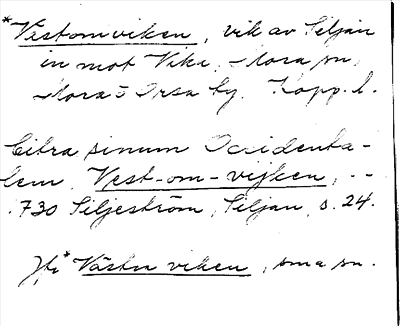 *Vestomviken, vik av Siljan
in mot Vika, Mora sn,
Mora o Orsa tg. Kopp. l.
Citra sinum Occidenta-
lem Vest-om-vijken, --
1730 Siljeström, Siljan, s. 24.
Jfr *Västerviken, sma sn.